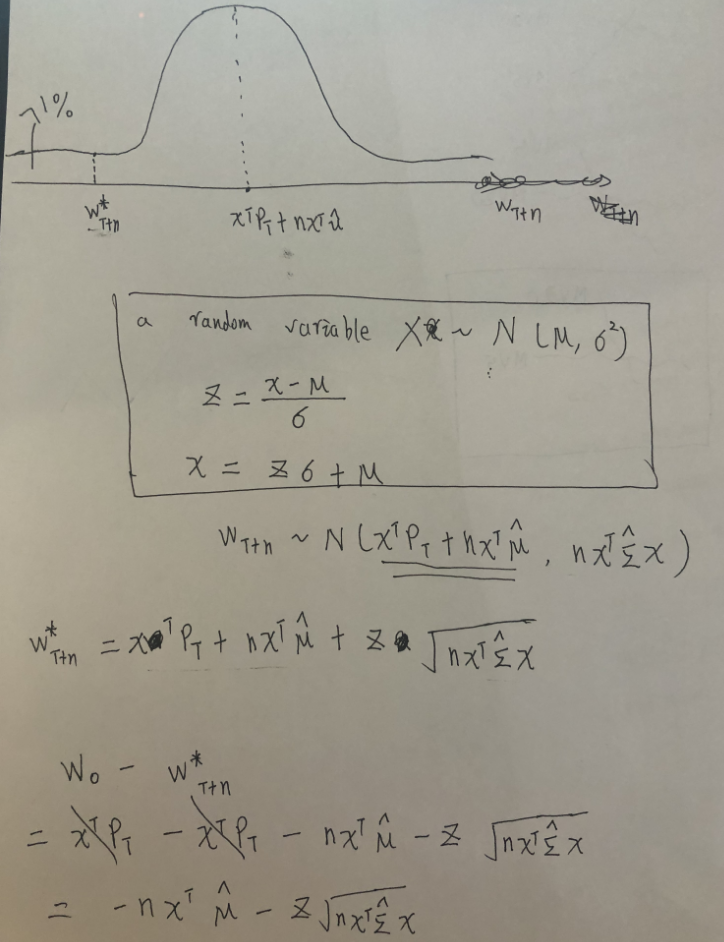 1%
W*_{T+n}
x^T P_T + n x^T û
W_{T+n}
a random variable X ~ N (M, σ²)
z = (x - M) / σ
x = z σ + M
W_{T+n} ~ N (x^T P_T + n x^T μ̂, n x^T Σ̂ x)
W*_{T+n} = x^T P_T + n x^T μ̂ + z √(n x^T Σ̂ x)
W_0 - W*_{T+n}
= x^T P_T - x^T P_T - n x^T μ̂ - z √(n x^T Σ̂ x)
= - n x^T μ̂ - z √(n x^T Σ̂ x)